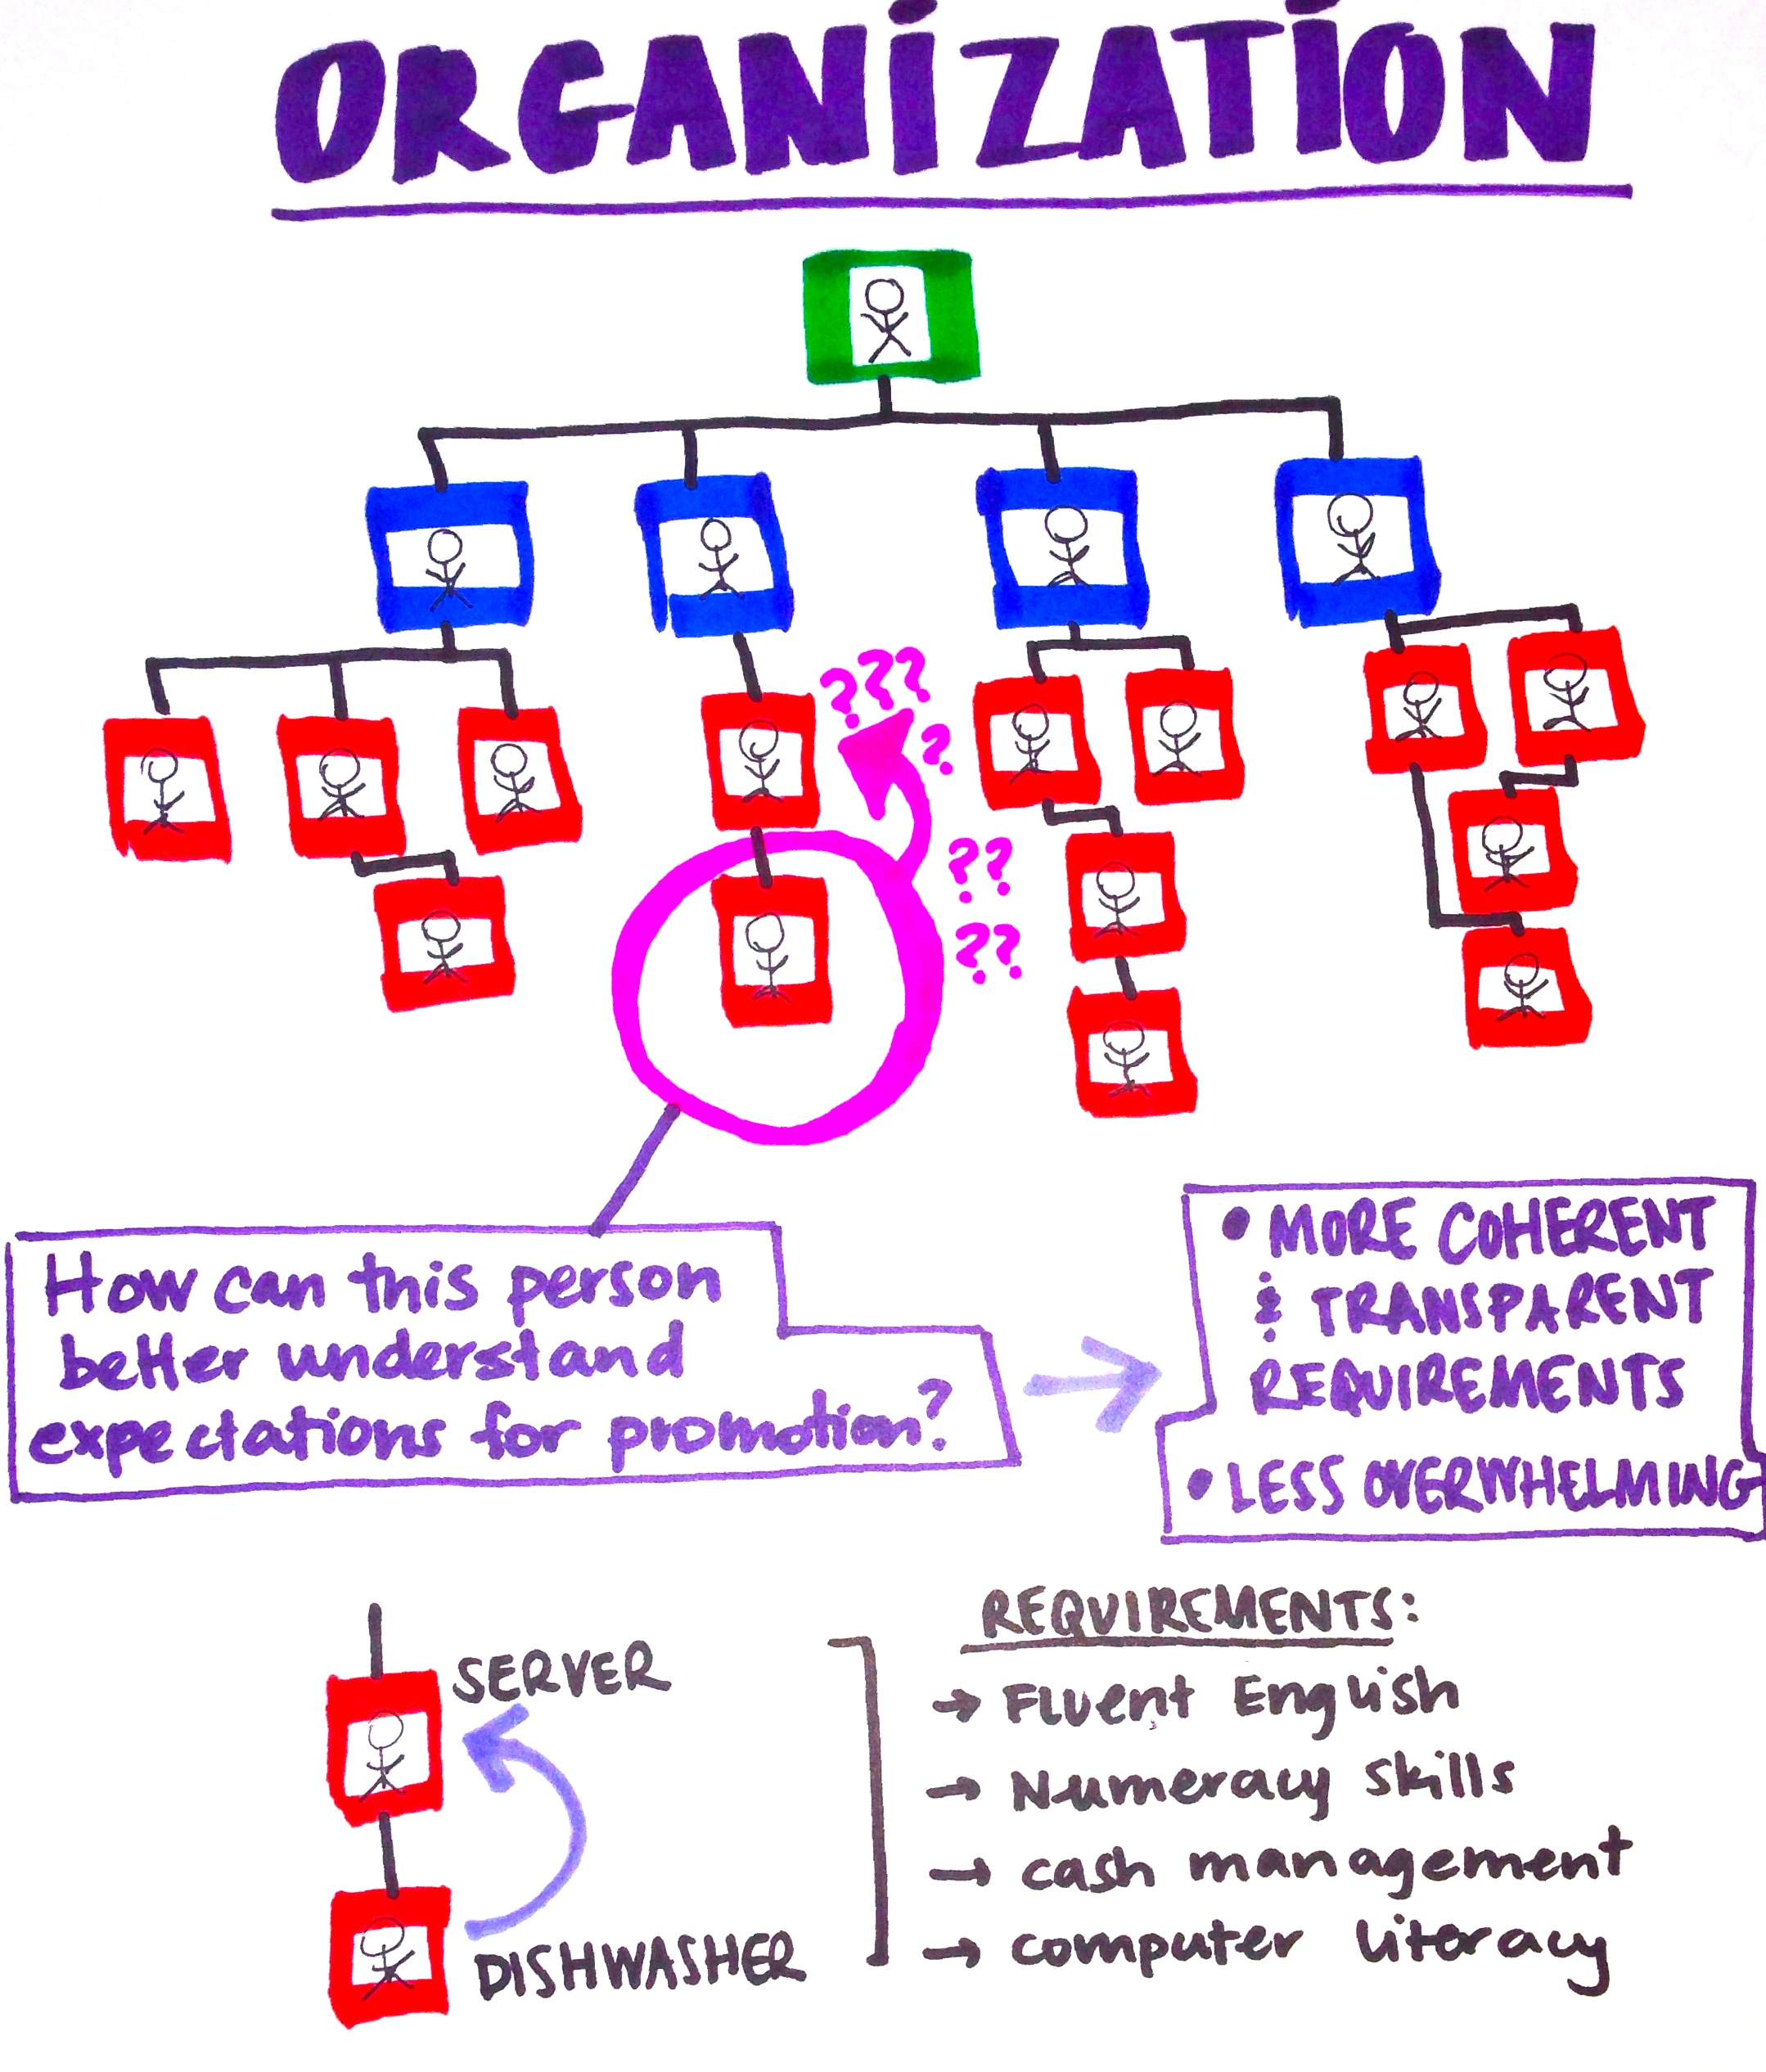 ORGANIZATION
???
?
??
??
How can this person
better understand
expectations for promotion?
• MORE COHERENT
& TRANSPARENT
REQUIREMENTS
• LESS OVERWHELMING
SERVER
DISHWASHER
REQUIREMENTS:
→ Fluent English
→ Numeracy skills
→ cash management
→ computer literacy